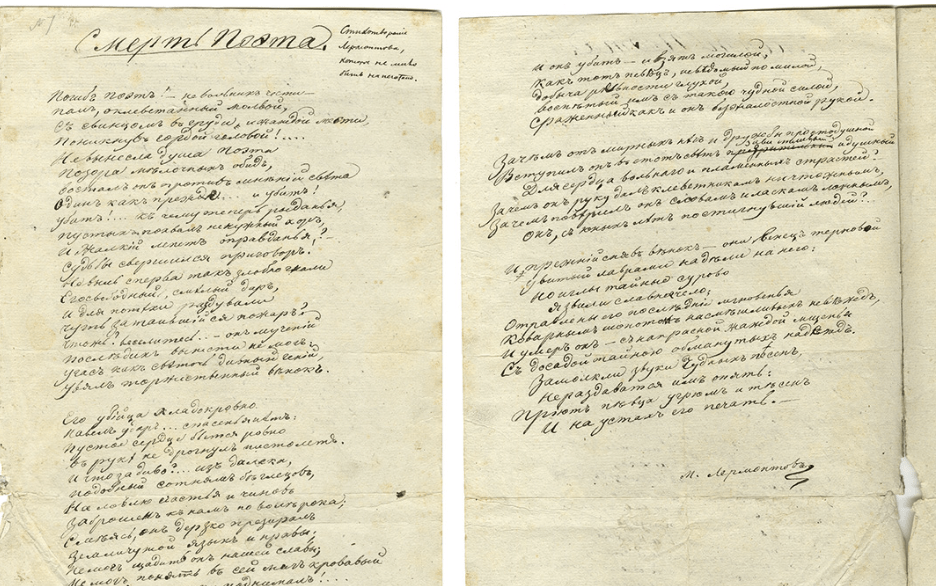 Смерть Поэта.
Стихотворенiе
Лермонтова,
которое не
было напечатано.
Погибъ Поэтъ! — невольникъ чести —
палъ, оклеветанный молвой,
Съ свинцомъ въ груди, и жаждой мести,
Поникнувъ гордой головой!....
Не вынесла душа Поэта
Позора мелочныхъ обидъ,
возсталъ онъ противъ мнѣнiй свѣта
Одинъ какъ прежде.... и убитъ!
Убитъ!.... къ чему теперь рыданья,
пустыхъ похвалъ ненужный хоръ,
и жалкiй лепетъ оправданья,?
Судьбы свершился приговоръ.
Не вы-ль сперва такъ злобно гнали
Его свободный, смѣлый даръ,
И для потѣхи раздували
Чуть затаившiйся пожаръ?
Что-жъ? веселитесь... — онъ мученiй
Послѣднихъ вынести не могъ,
Угасъ какъ свѣточь дивный генiй,
Увялъ торжественный вѣнокъ.
Его убiйца хладнокровно
Навелъ ударъ... спасенья нѣтъ:
Пустое сердце бьется ровно
Въ рукѣ не дрогнулъ пистолетъ.
И что за диво?... изъ далека,
Подобный сотнямъ бѣглецовъ,
На ловлю счастья и чиновъ
Заброшенъ къ намъ по волѣ рока;
Смѣясь, онъ дерзко презиралъ
Земли чужой языкъ и нравы;
Не могъ щадить онъ нашей славы;
Не могъ понять въ сей мигъ кровавый
поднималъ!....
И онъ убитъ — и взятъ могилой,
Какъ тотъ пѣвецъ, невѣдомый но милой,
Добыча ревности глухой,
Воспѣтый имъ съ такою чудной силой,
Сраженный какъ и онъ безжалостной рукой.
Зачѣмъ отъ мирныхъ нѣгъ и дружбы простодушной
Вступилъ онъ въ этотъ свѣтъ завистливый и душный
Для сердца вольнаго и пламенныхъ страстей?
Зачѣмъ онъ руку далъ клеветникамъ ничтожнымъ,
Зачѣмъ повѣрилъ онъ словамъ и ласкамъ ложнымъ,
Онъ, съ юныхъ лѣтъ постигнувшiй людей?..
И прежнiй снявъ вѣнокъ — они вѣнецъ терновой
Увитый лаврами надѣли на него:
Но иглы тайныя сурово
Язвили славное чело;
Отравлены его послѣднiя мгновенья
Коварнымъ шопотомъ насмѣшливыхъ невѣждъ,
И умеръ онъ — съ напрасной жаждой мщенья
Съ досадой тайною обманутыхъ надеждъ.
Замолкли звуки чудныхъ пѣсенъ,
Не раздаваться имъ опять:
Прiютъ пѣвца угрюмъ и тѣсенъ
И на устахъ его печать. —
М. Лермонтовъ